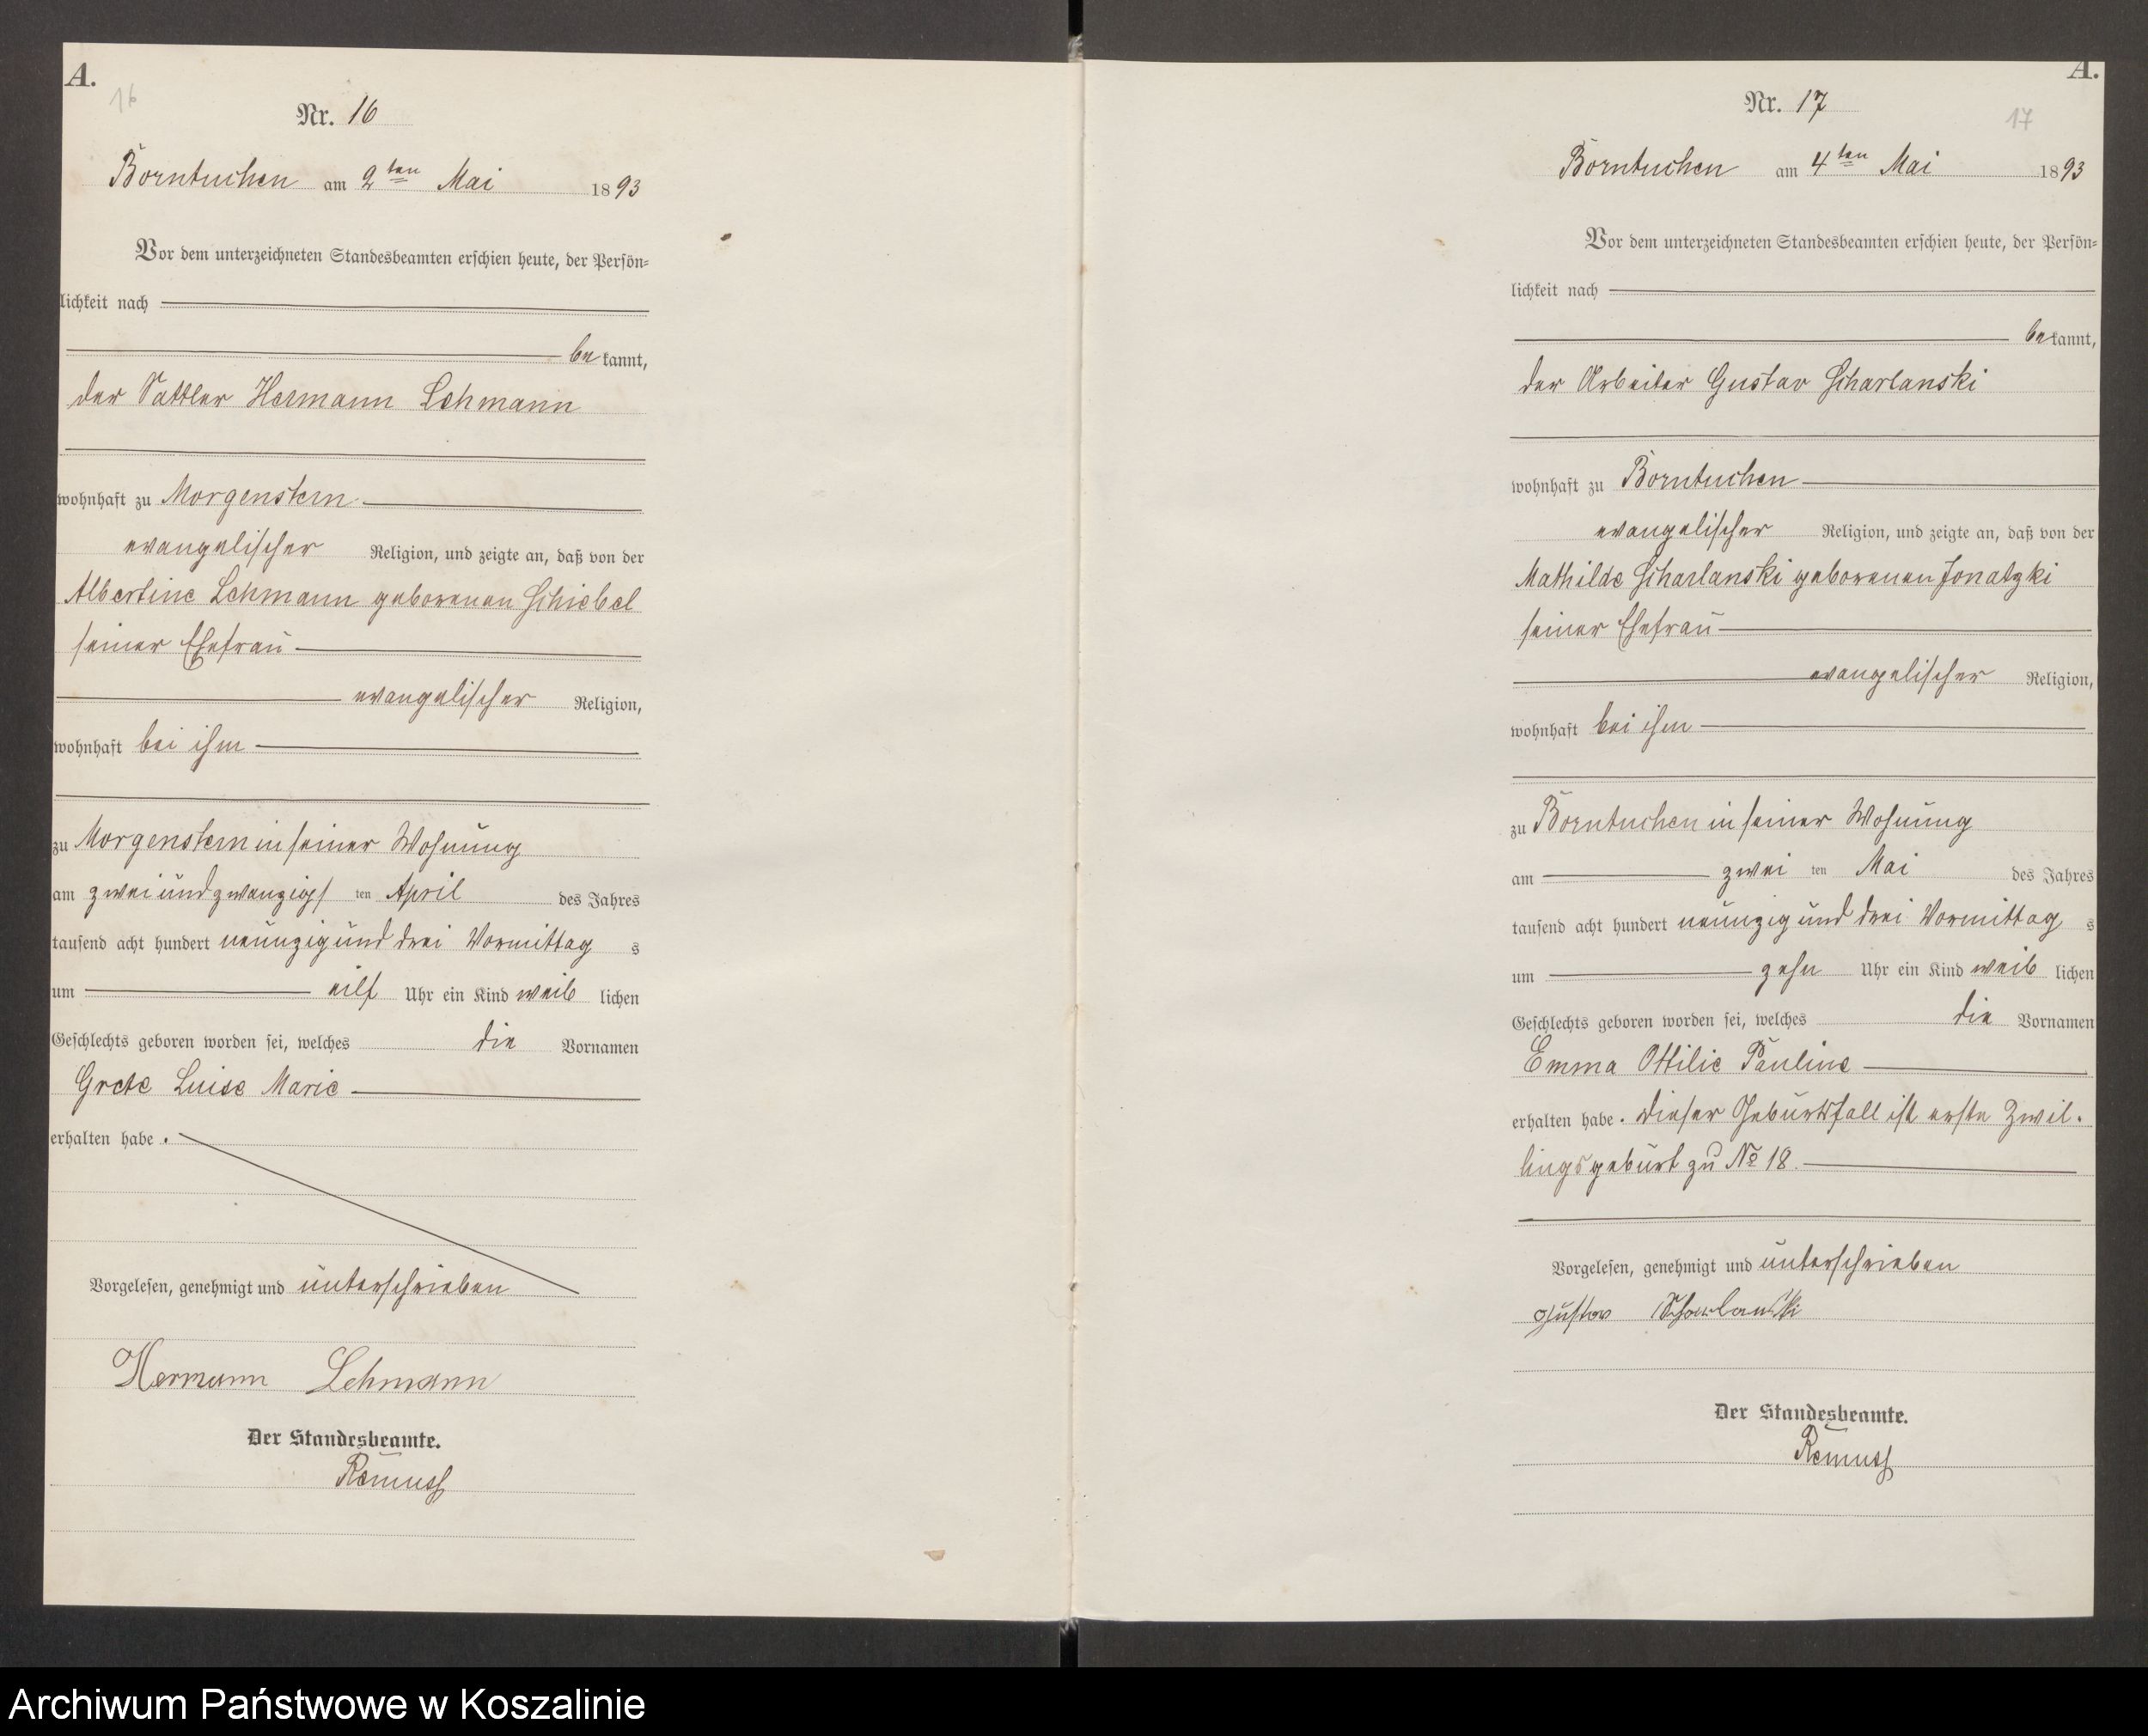 A.
16
Nr. 16
Borntuchen am 2ten Mai 1893
Vor dem unterzeichneten Standesbeamten erschien heute, der Persön-
lichkeit nach
be kannt,
der Sattler Hermann Lehmann
wohnhaft zu Morgenstern
evangelischer Religion, und zeigte an, daß von der
Albertine Lehmann geborenen Schiebel
seiner Ehefrau
evangelischer Religion,
wohnhaft bei ihm
zu Morgenstern in seiner Wohnung
am zweiundzwanzigs ten April des Jahres
tausend acht hundert neunzig und drei Vormittag s
um eilf Uhr ein Kind weib lichen
Geschlechts geboren worden sei, welches die Vornamen
Grete Luise Marie
erhalten habe.
Vorgelesen, genehmigt und unterschrieben
Hermann Lehmann
Der Standesbeamte.
Remus
A.
17
Nr. 17
Borntuchen am 4ten Mai 1893
Vor dem unterzeichneten Standesbeamten erschien heute, der Persön-
lichkeit nach
be kannt,
der Arbeiter Gustav Scharlanski
wohnhaft zu Borntuchen
evangelischer Religion, und zeigte an, daß von der
Mathilde Scharlanski geborenen Jonatzki
seiner Ehefrau
evangelischer Religion,
wohnhaft bei ihm
zu Borntuchen in seiner Wohnung
am zwei ten Mai des Jahres
tausend acht hundert neunzig und drei Vormittag s
um zehn Uhr ein Kind weib lichen
Geschlechts geboren worden sei, welches die Vornamen
Emma Ottilie Pauline
erhalten habe. Dieser Geburtsfall ist erste Zwil-
lingsgeburt zu No 18.
Vorgelesen, genehmigt und unterschrieben
Gustav Scharlanski
Der Standesbeamte.
Remus
Archiwum Państwowe w Koszalinie